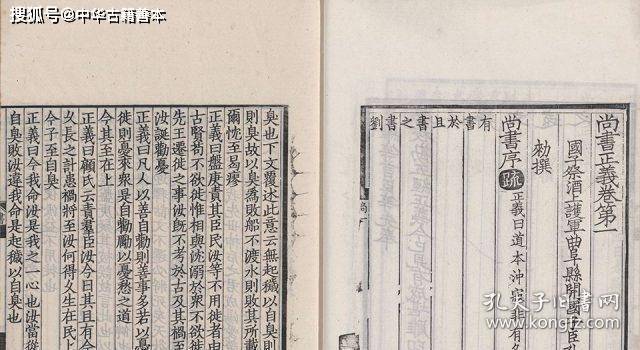 搜狐号@中华古籍善本
尚書正義卷第一
國子祭酒上護軍曲阜縣開國子臣
勑撰
尚書序 疏 正義曰道本沖寂非有名
有書於且書之書劉
臭也下文覆述此意云無起穢以自臭則
則臭故以臭爲敗船不渡水則敗其所載
爾忱至曷瘳
正義曰盤庚責其臣民汝等不用徙者由
古賢苟不欲徙惟相與沈溺於衆不欲徙
先王遷徙之事汝既不考於古及其禍至
汝誕勸憂
正義曰凡人以善自勸則善事多若以憂
徙則憂來衆是自勸勵以憂愁之道
今其至在上
正義曰顧氏云責羣臣汝今日其且有今
久長之計患禍將至汝何得久生在民上
今予至自臭
正義曰今我命汝是我之一心也汝當從
自臭敗汝違我命是起穢以自臭也
孔夫子旧书网
www.kongfz.com